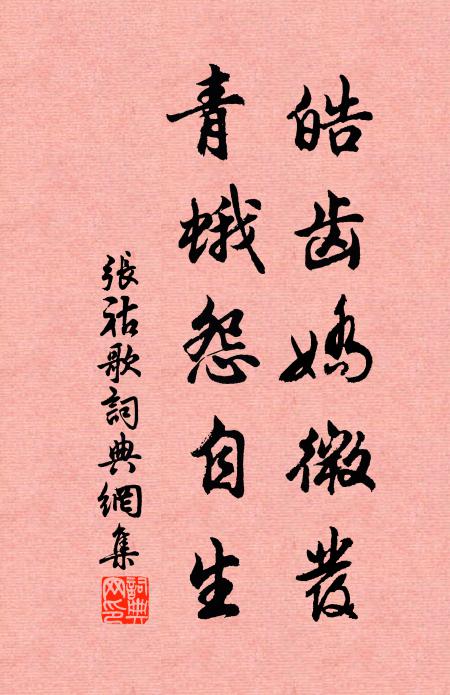 皓齒嬌微發
青蛾怨自生
張祜歌詞典網集
詞典網印